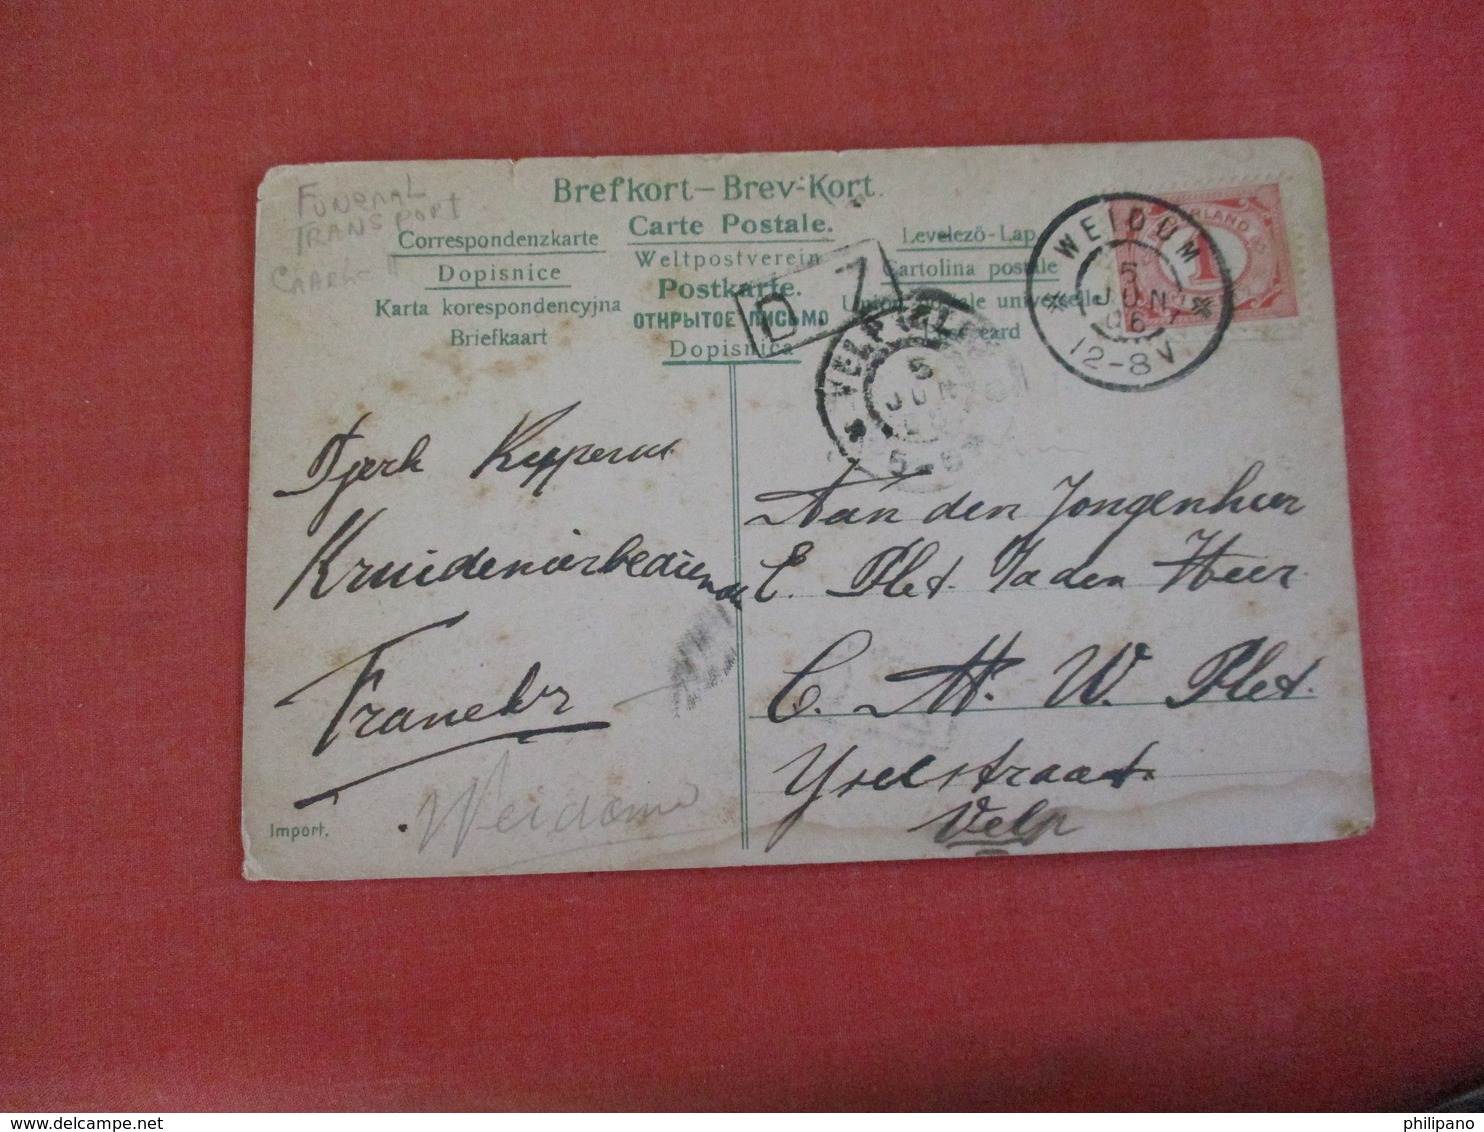 FUNERAL
TRANSPORT
Brefkort – Brev-Kort.
Carte Postale.
Correspondenzkarte
Levelező-Lap
Weltpostverein
Dopisnice
Cartolina postale
Postkarte.
Karta korespondencyjna
Union postale universelle
ОТКРЫТОЕ ПИСЬМО
Briefkaart
Post card
Dopisnica
D. 7
WEIDUM
5
JUN
06
12-8 V
VELP (GLD
5
JUN
5-6
Tjerk
Kruideniersbediende
Franeker
Weidum
Aan den Jongenheer
C. Plet. Ja den Heer
C. H. W. Plet.
Yselstraat
Velp
Import.
NEDERLAND
1
philipano